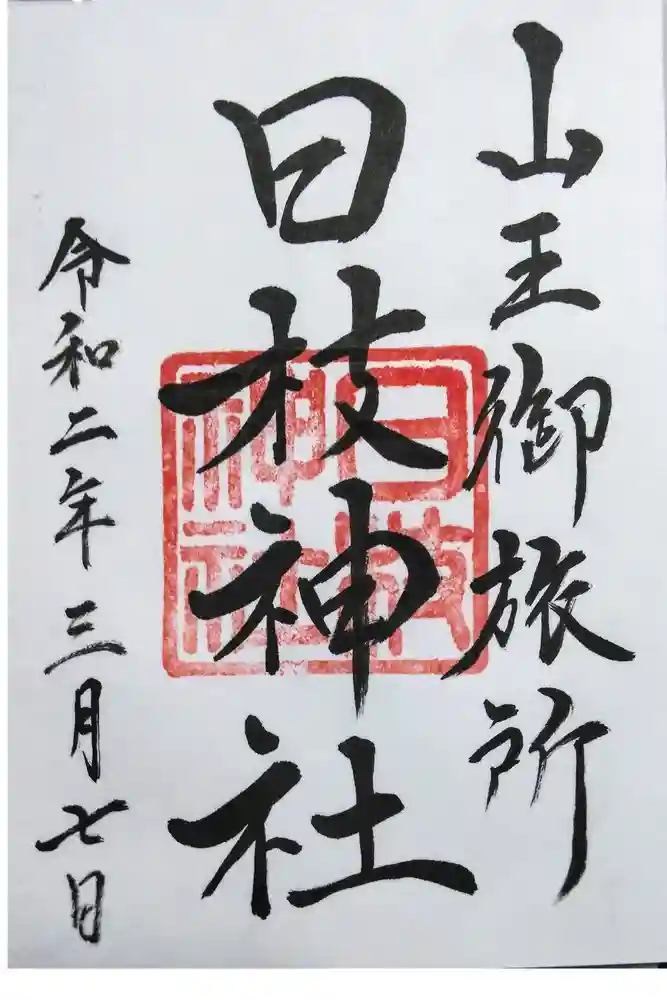 山王御旅所
日枝神社
日枝神社
令和二年三月七日